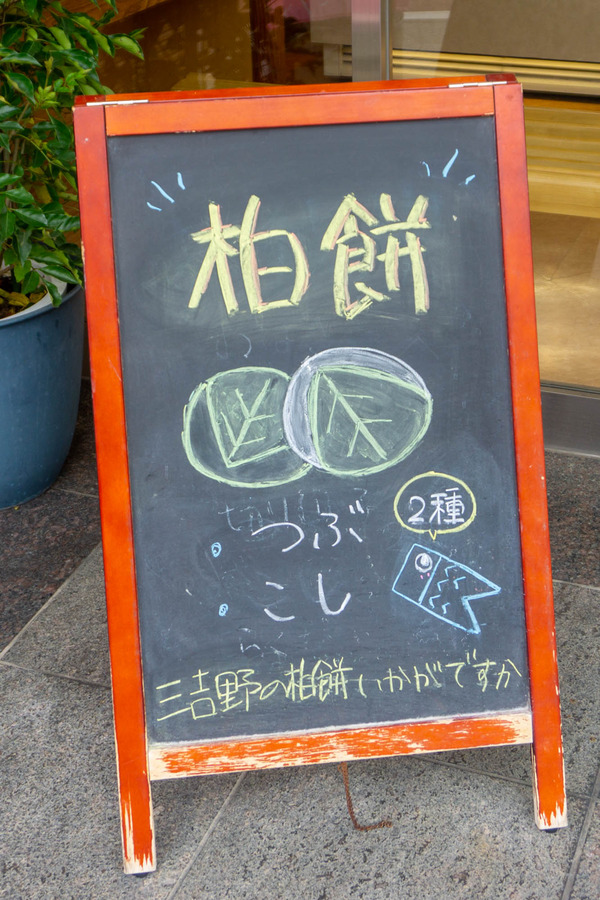 柏餅
2種
つぶ
こし
三吉野の柏餅いかがですか